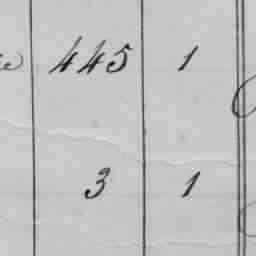 445 1
3 1